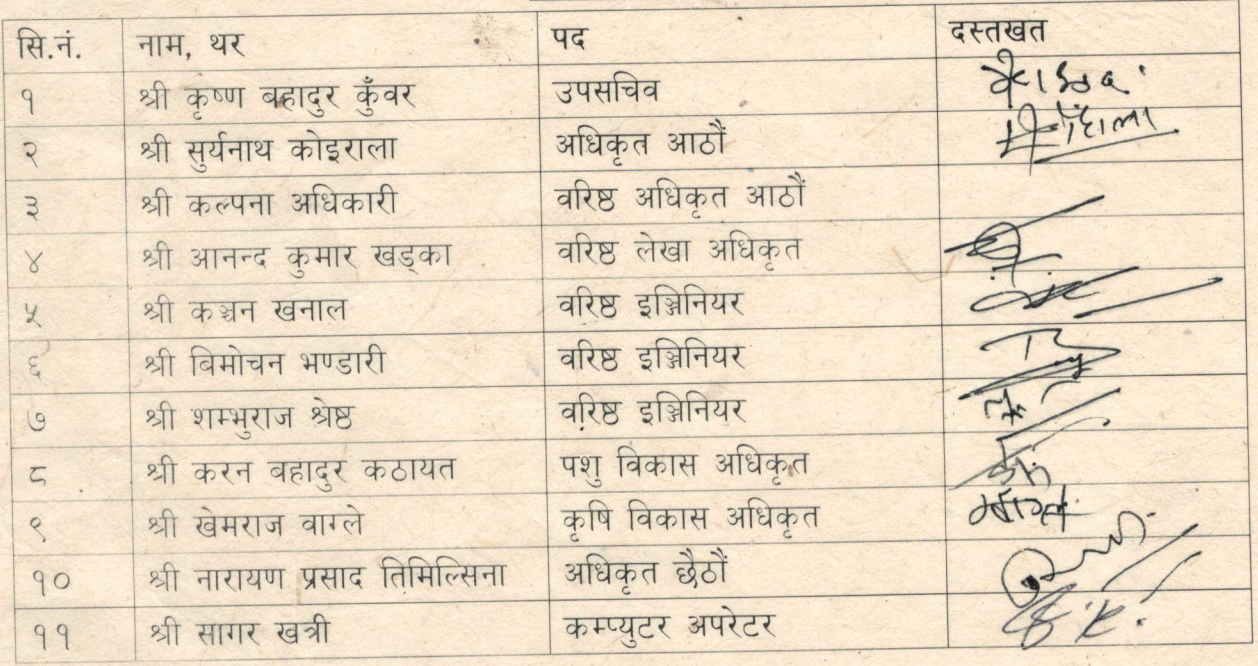 सि.नं. नाम, थर पद दस्तखत
१ श्री कृष्ण बहादुर कुँवर उपसचिव
२ श्री सुर्यनाथ कोइराला अधिकृत आठौं
३ श्री कल्पना अधिकारी वरिष्ठ अधिकृत आठौं
४ श्री आनन्द कुमार खड्का वरिष्ठ लेखा अधिकृत
५ श्री कञ्चन खनाल वरिष्ठ इञ्जिनियर
६ श्री बिमोचन भण्डारी वरिष्ठ इञ्जिनियर
७ श्री शम्भुराज श्रेष्ठ वरिष्ठ इञ्जिनियर
८ श्री करन बहादुर कठायत पशु विकास अधिकृत
९ श्री खेमराज वाग्ले कृषि विकास अधिकृत
१० श्री नारायण प्रसाद तिमिल्सिना अधिकृत छैठौं
११ श्री सागर खत्री कम्प्युटर अपरेटर